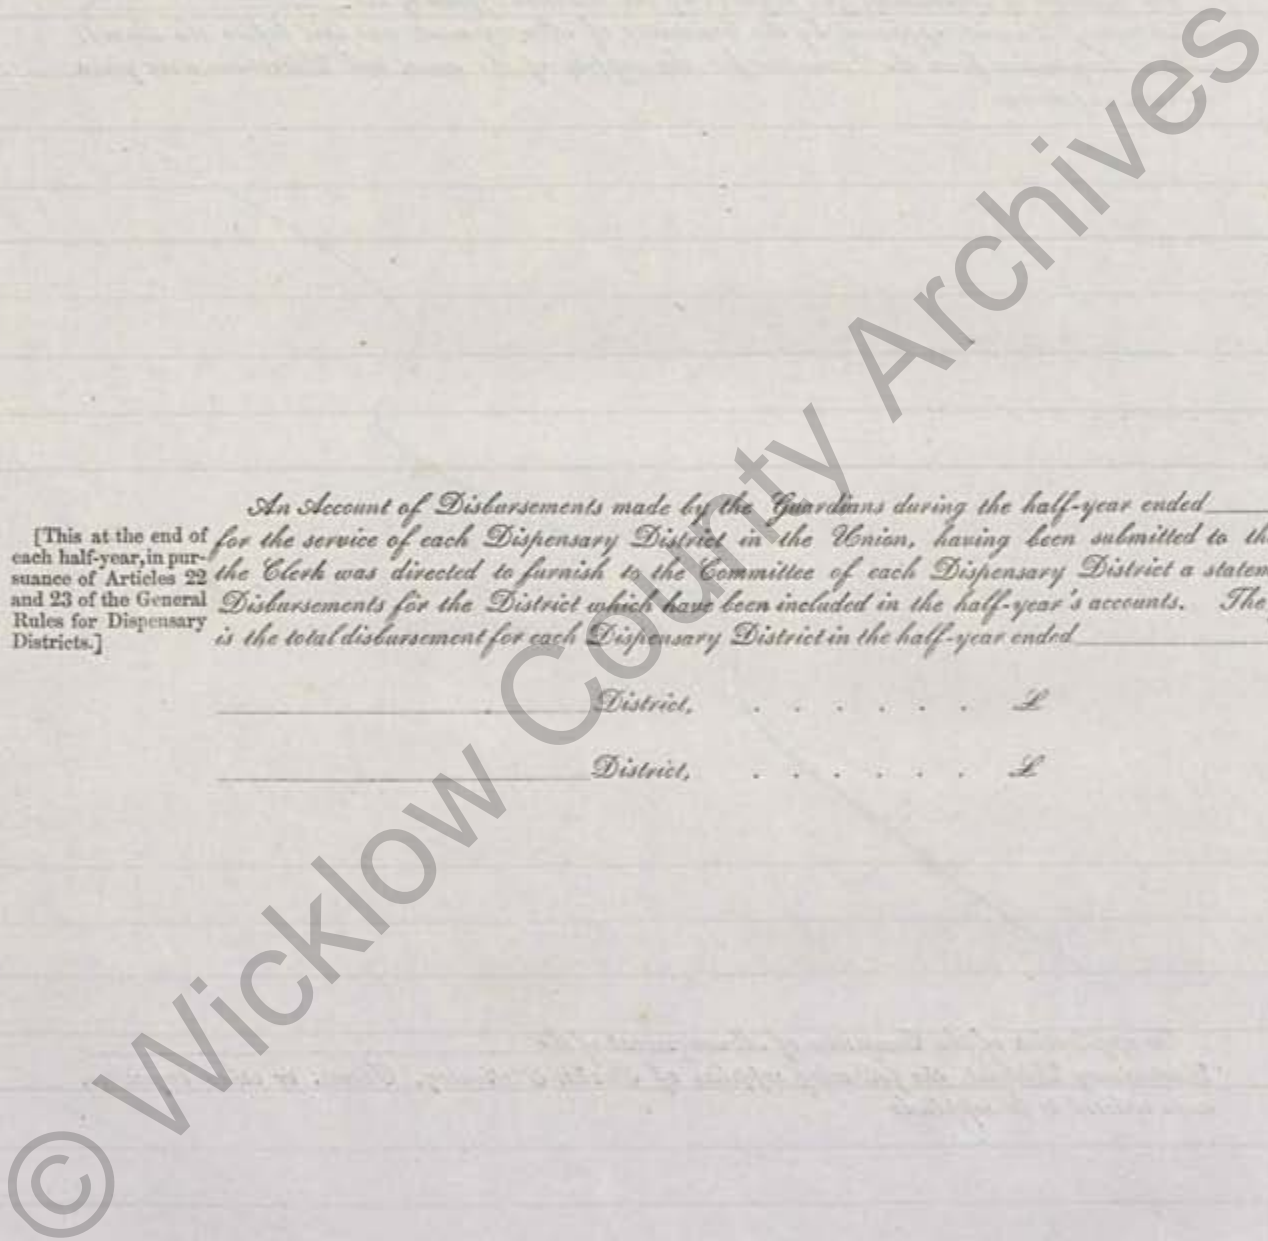 [This at the end of
each half-year, in pur-
suance of Articles 22
and 23 of the General
Rules for Dispensary
Districts.]
An Account of Disbursements made by the Guardians during the half-year ended
for the service of each Dispensary District in the Union, having been submitted to th
the Clerk was directed to furnish to the Committee of each Dispensary District a statem
Disbursements for the District which have been included in the half-year's accounts. The
is the total disbursement for each Dispensary District in the half-year ended
District, . . . . . . £
District, . . . . . . £
© Wicklow County Archives